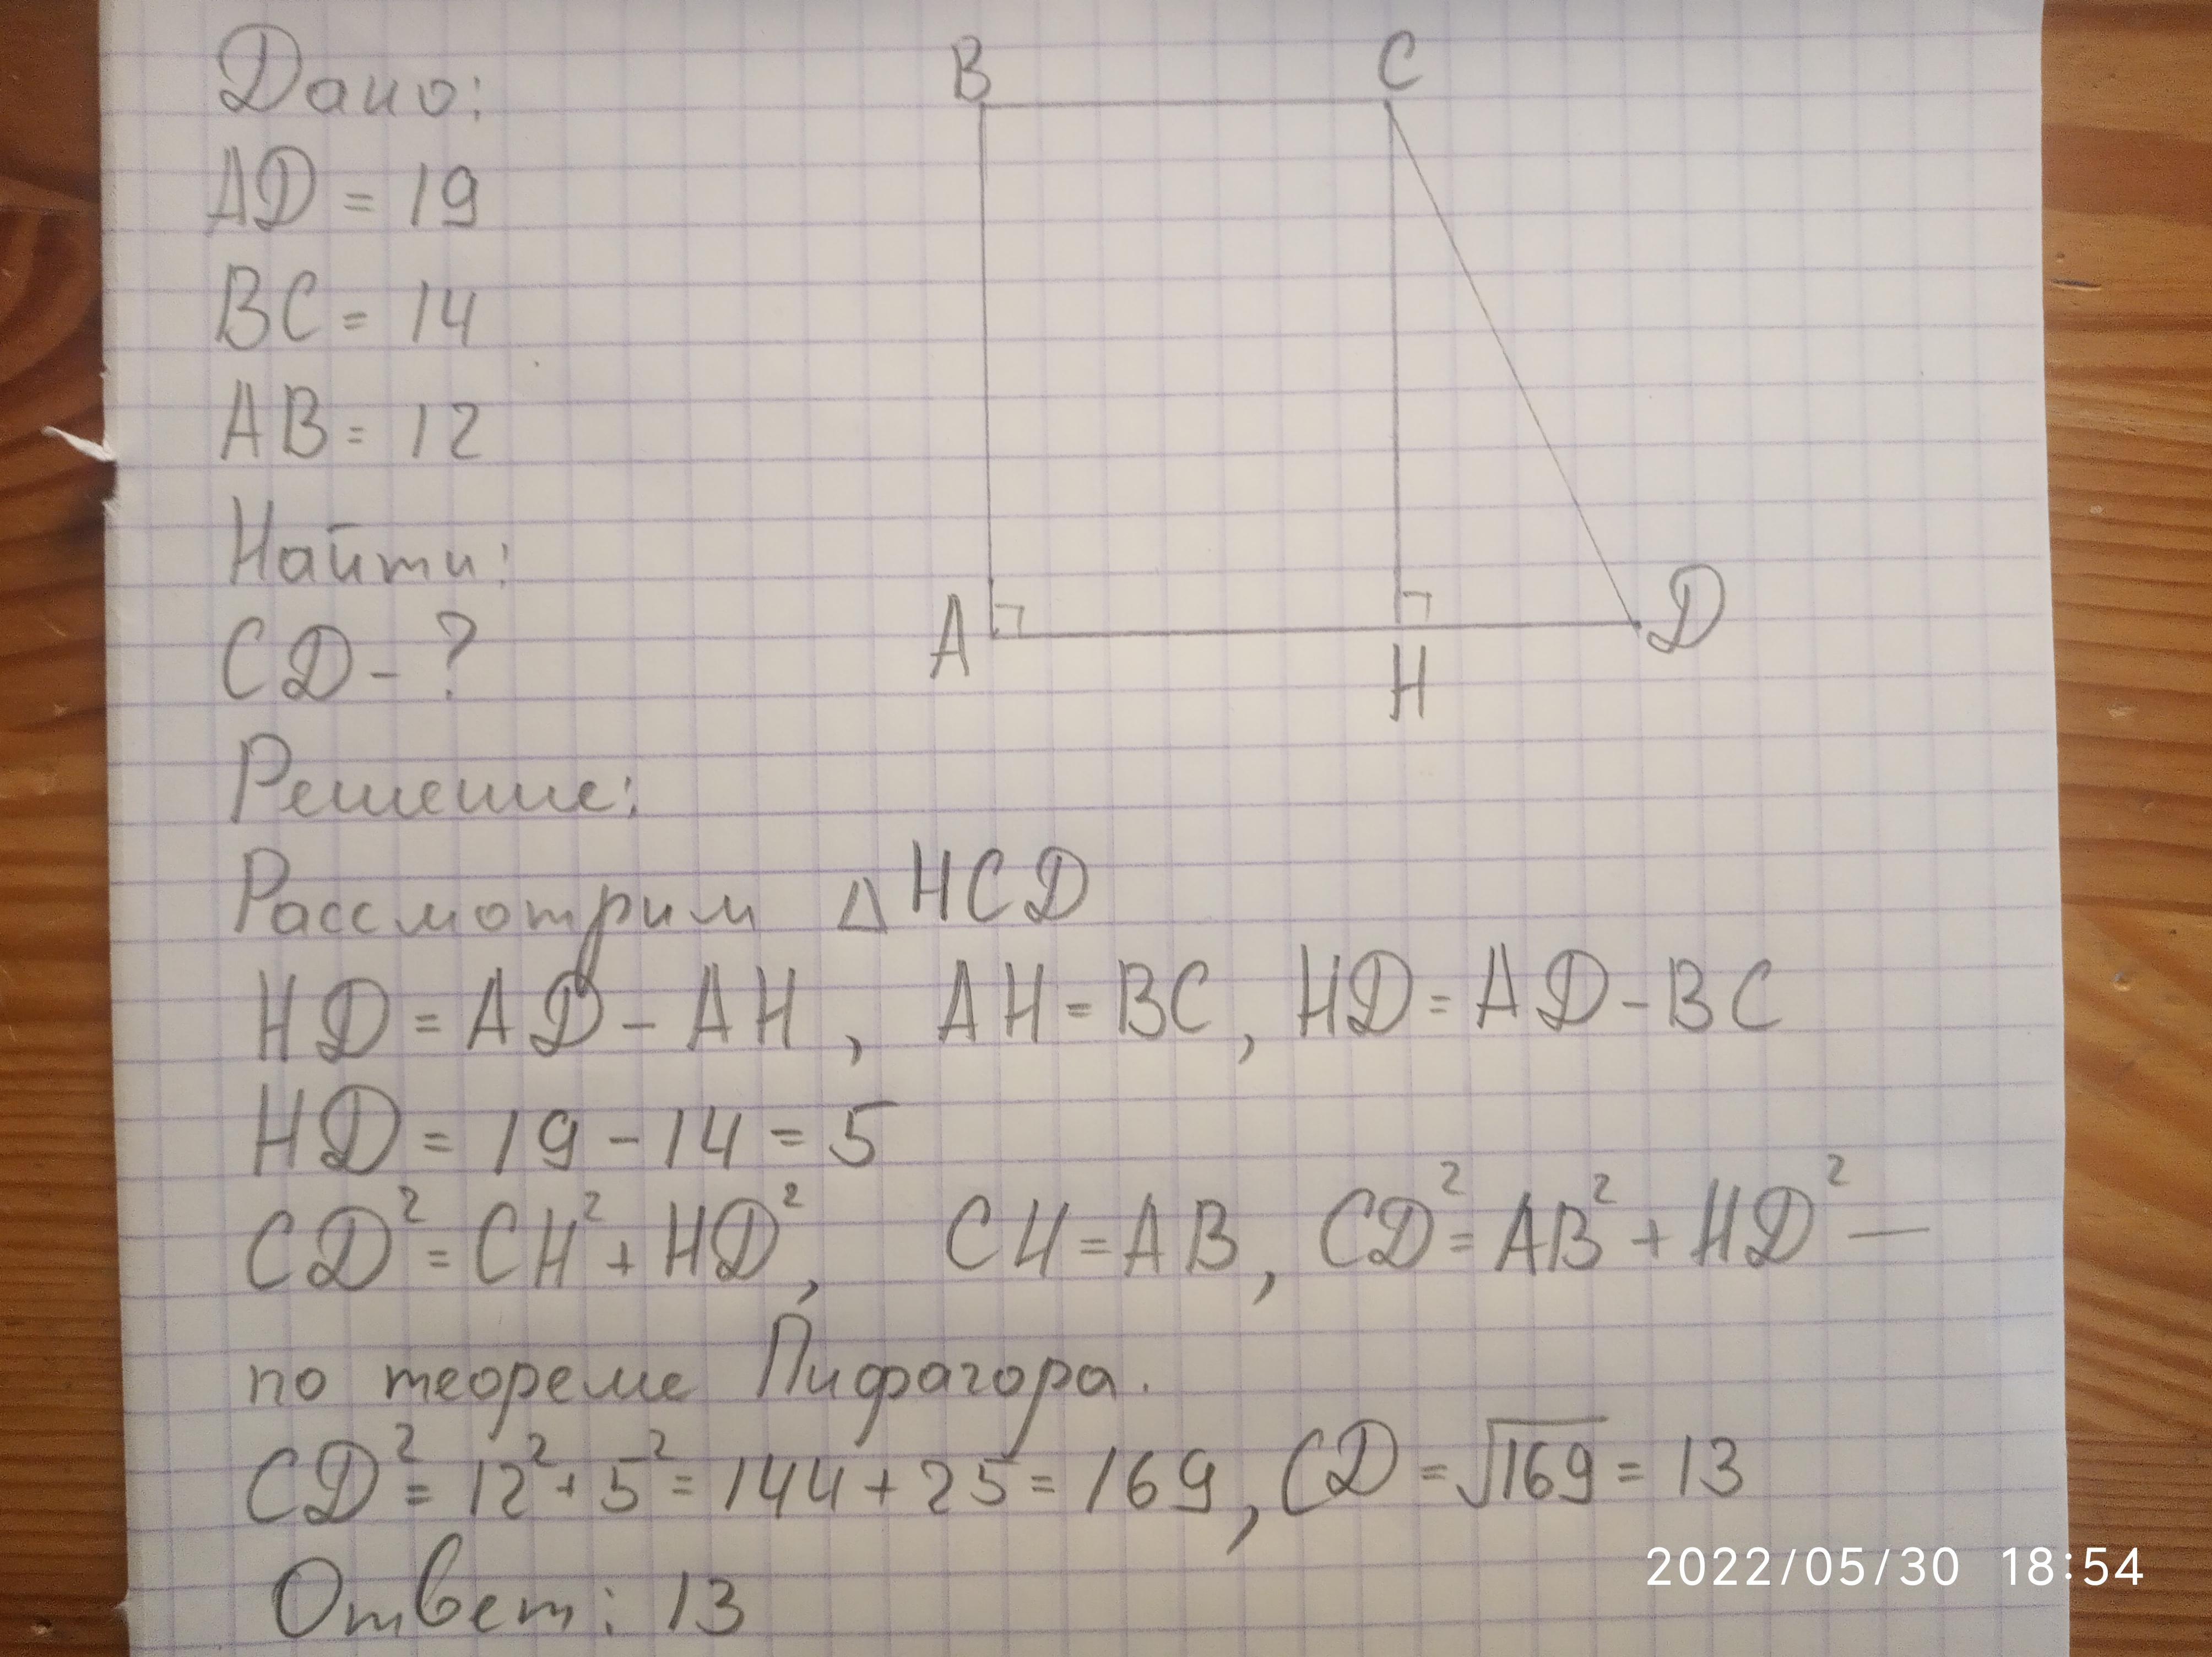 Дано:
AD = 19
BC = 14
AB = 12
Найти:
CD - ?
B
C
A
H
D
Решение:
Рассмотрим △HCD
HD = AD - AH, AH = BC, HD = AD - BC
HD = 19 - 14 = 5
CD² = CH² + HD², CH = AB, CD² = AB² + HD² —
по теореме Пифагора.
CD² = 12² + 5² = 144 + 25 = 169, CD = √169 = 13
Ответ: 13
2022/05/30 18:54